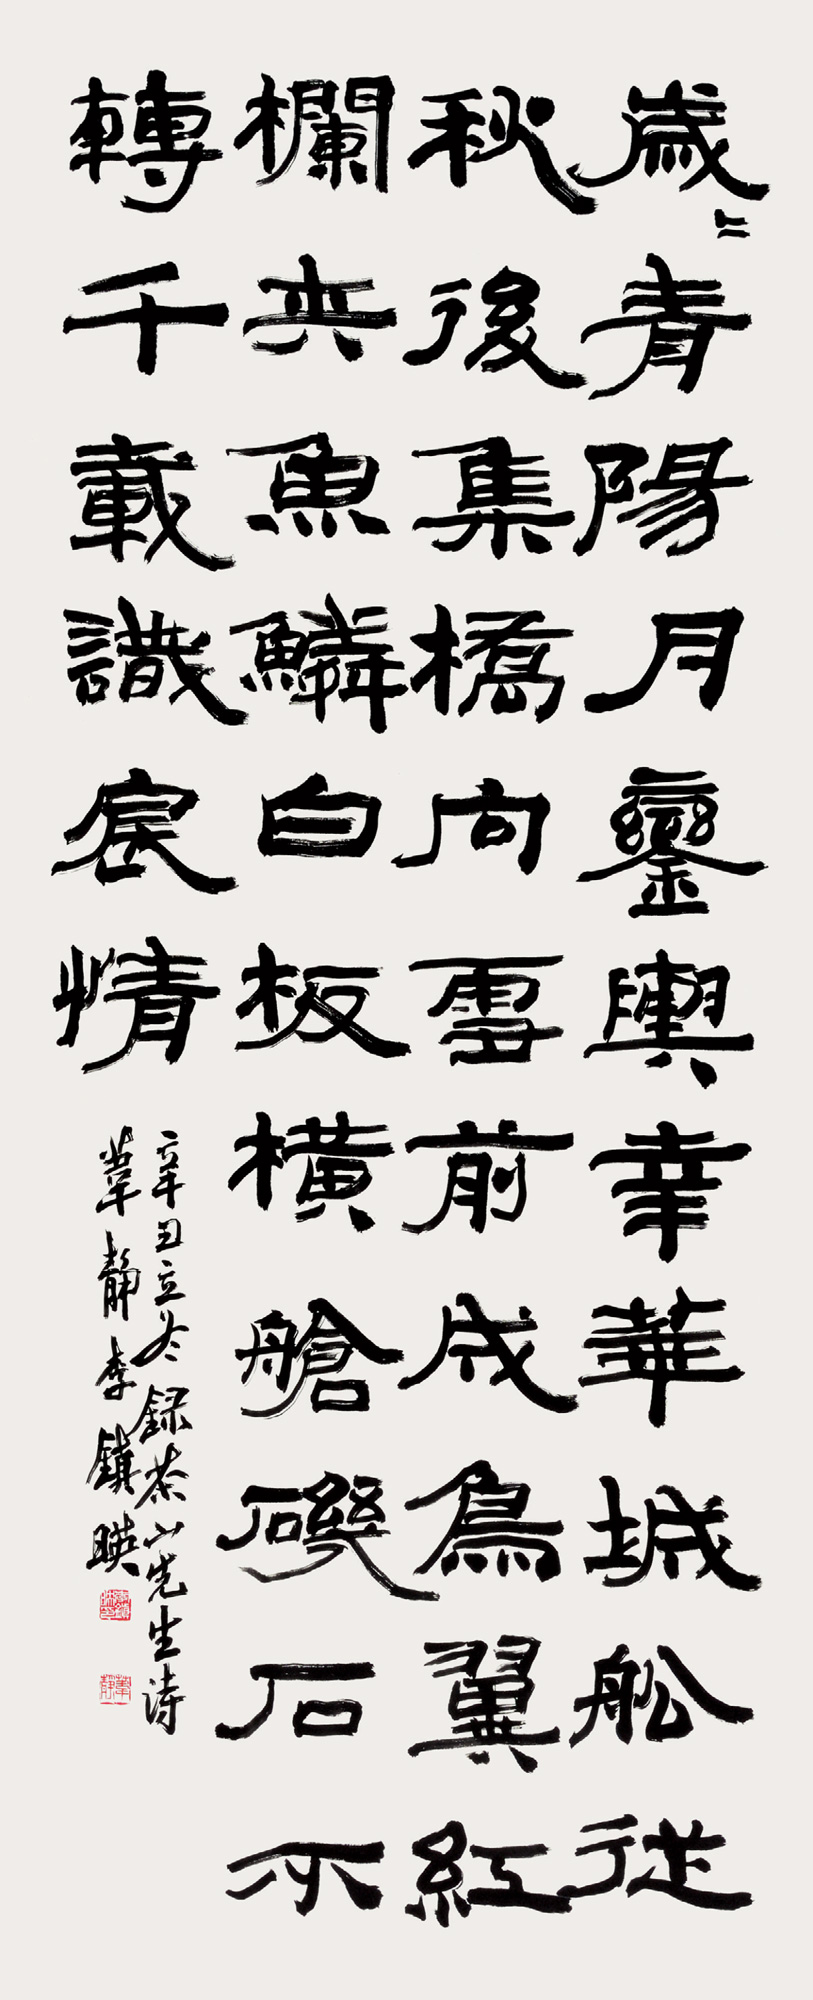 歲〻青陽月鑾輿幸華城舩從
秋後集橋向雪前成鳥翼紅
欄夾魚鱗白板橫艙磯石不
轉千載識宸情
辛丑立冬錄茶山先生詩
葦靜李鎮暎